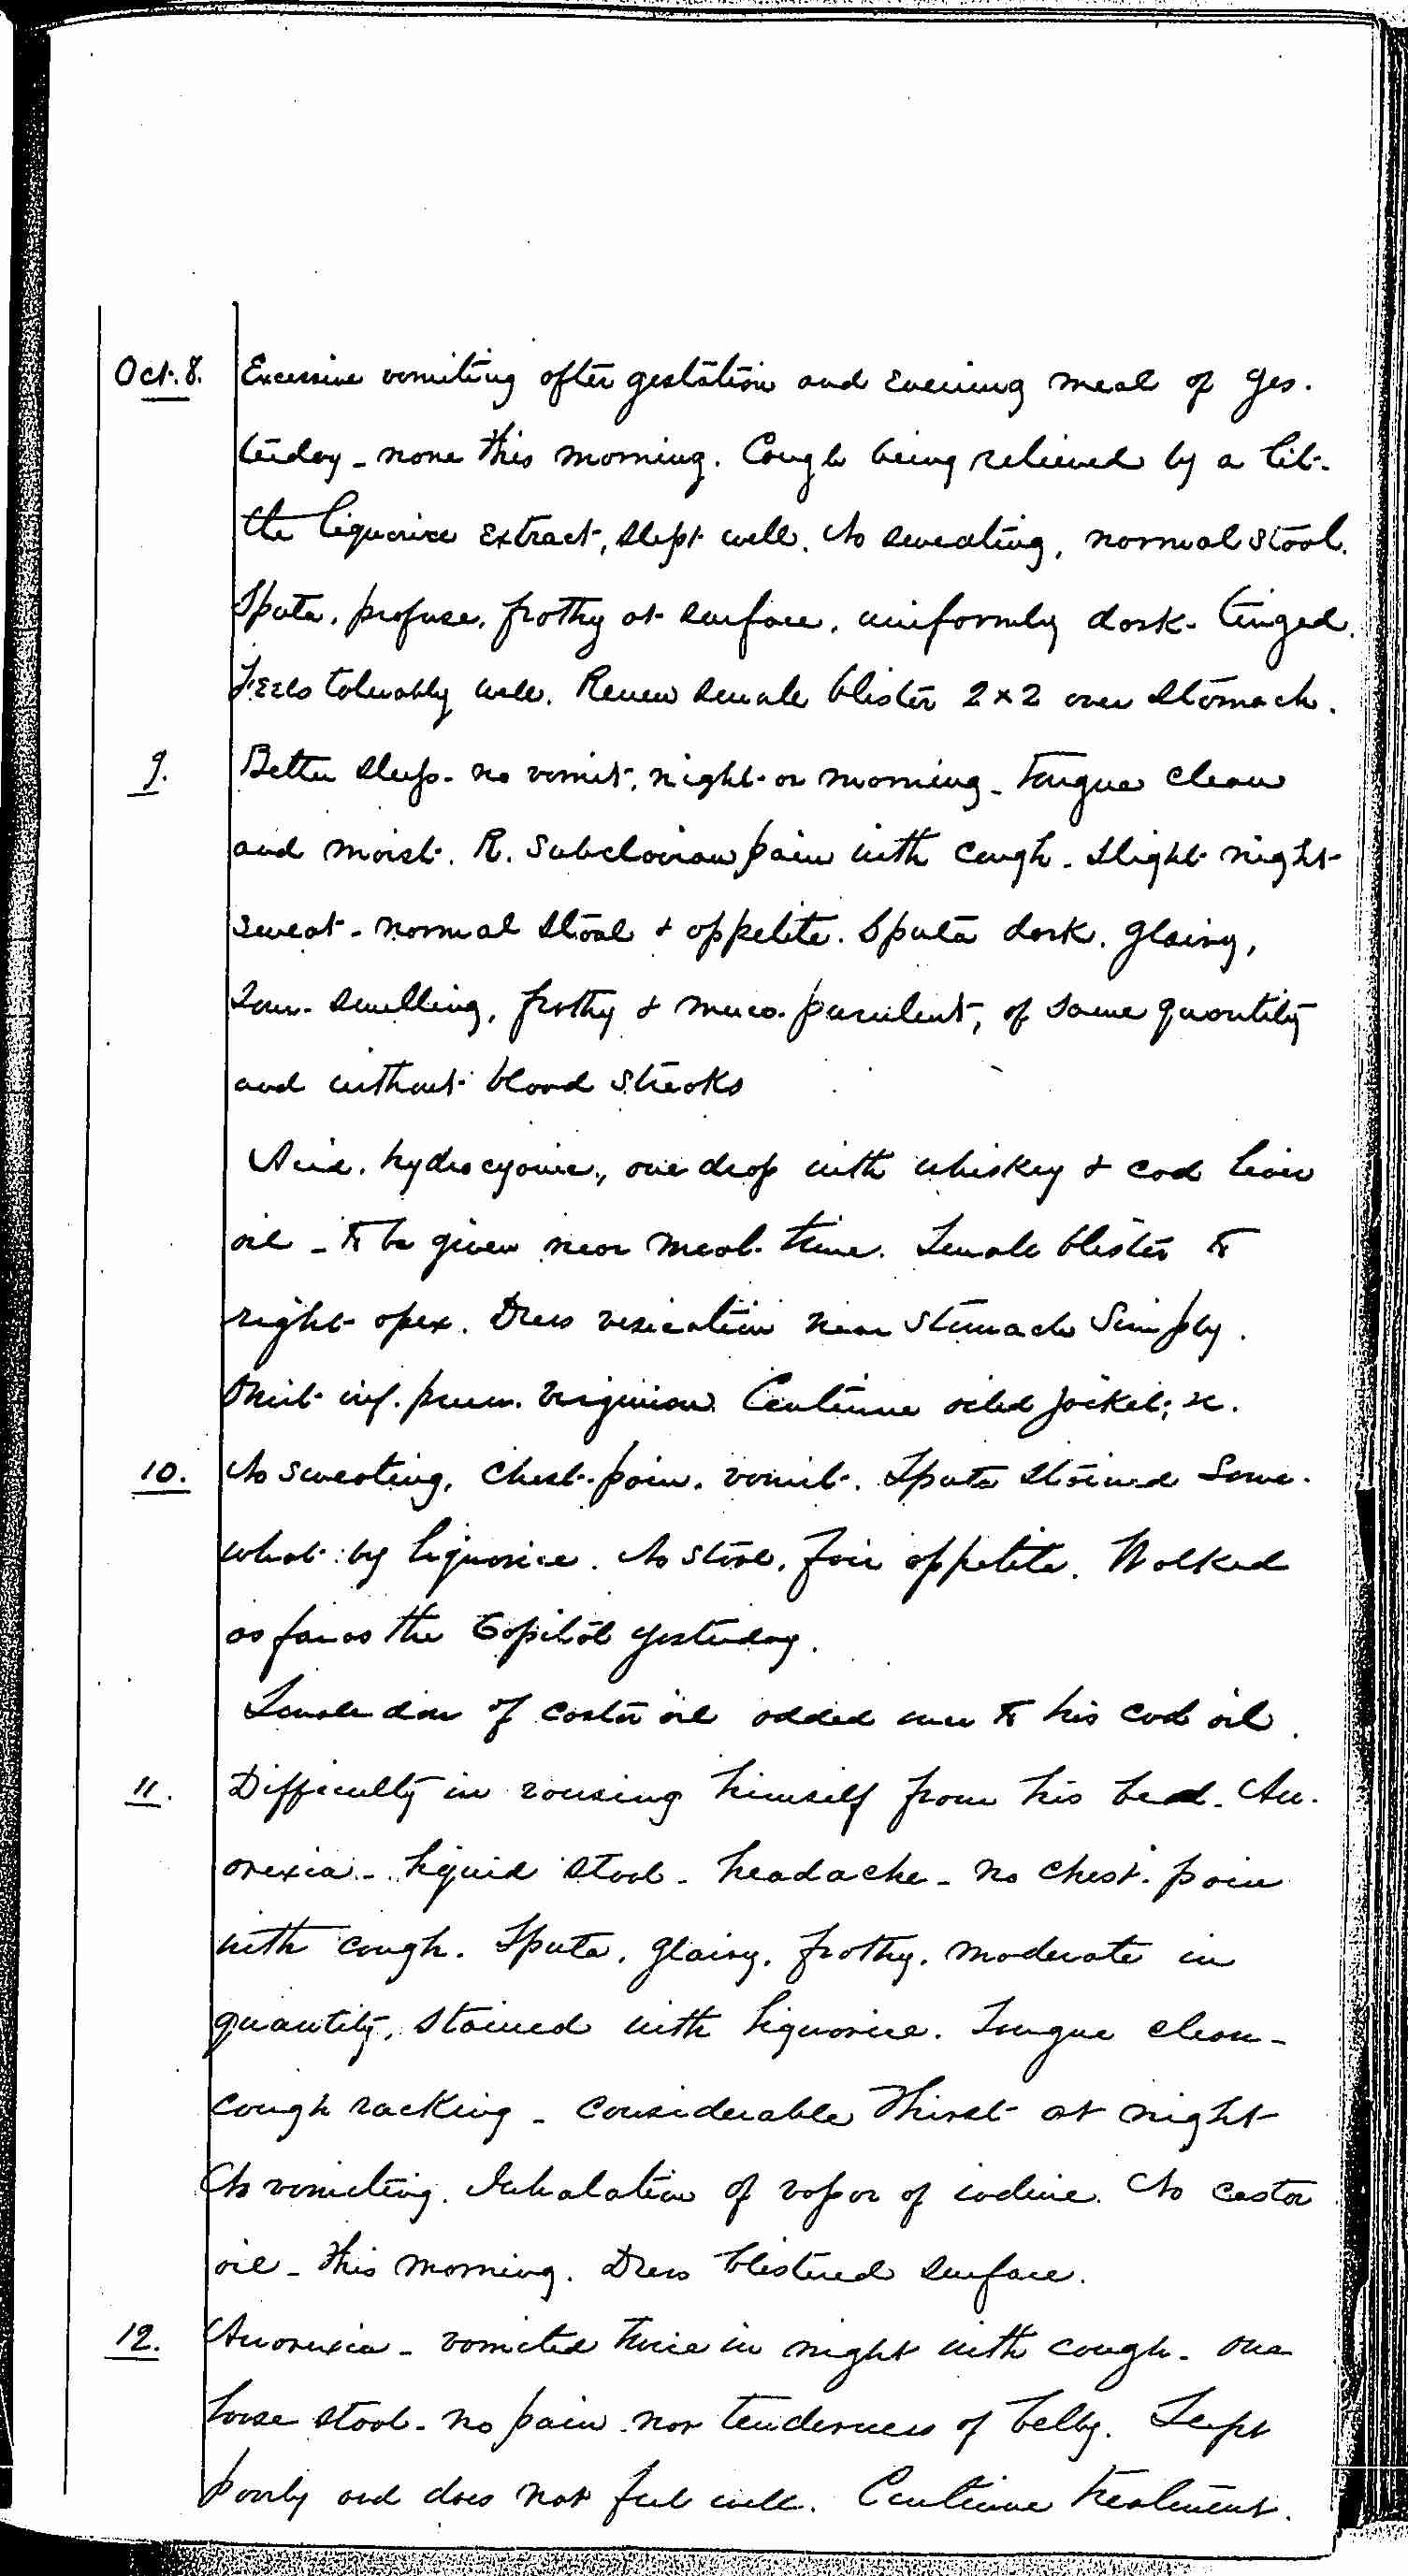 Oct. 8. Excessive vomiting after gestation and evening meal of yes-
terday - none this morning. Cough being relieved by a lit-
tle liquorice extract, slept well. No sweating, normal stool.
Sputa, profuse, frothy at surface, uniformly dark-tinged.
Feels tolerably well. Renew small blister 2 x 2 over stomach.
9. Better sleep - no vomit, night or morning - Tongue clean
and moist. R. subclavian pain with cough - slight night
sweat - normal stool & appetite. Sputa dark, glairy,
sour-smelling, frothy & muco-purulent, of same quantity
and without blood streaks
Acid. hydrocyanic., one drop with whiskey & cod liver
oil - to be given near meal-time. Small blister to
right apex. Dress vesication near stomach simply.
Omit inf. prun. virginian. Continue oiled jacket, &c.
10. No sweating, chest-pain, vomit. Sputa stained some-
what by liquorice. No stool, fair appetite. Walked
as far as the Capitol yesterday.
Small dose of castor oil added once to his cod oil.
11. Difficulty in rousing himself from his bed. An-
orexia - liquid stool - headache - no chest-pain
with cough. Sputa, glairy, frothy, moderate in
quantity, stained with liquorice. Tongue clean -
cough racking - considerable thirst at night
No vomiting. Inhalation of vapor of iodine. No castor
oil - this morning. Dress blistered surface.
12. Anorexia - vomited twice in night with cough - one
loose stool - no pain nor tenderness of belly. Slept
poorly and does not feel well. Continue treatment.